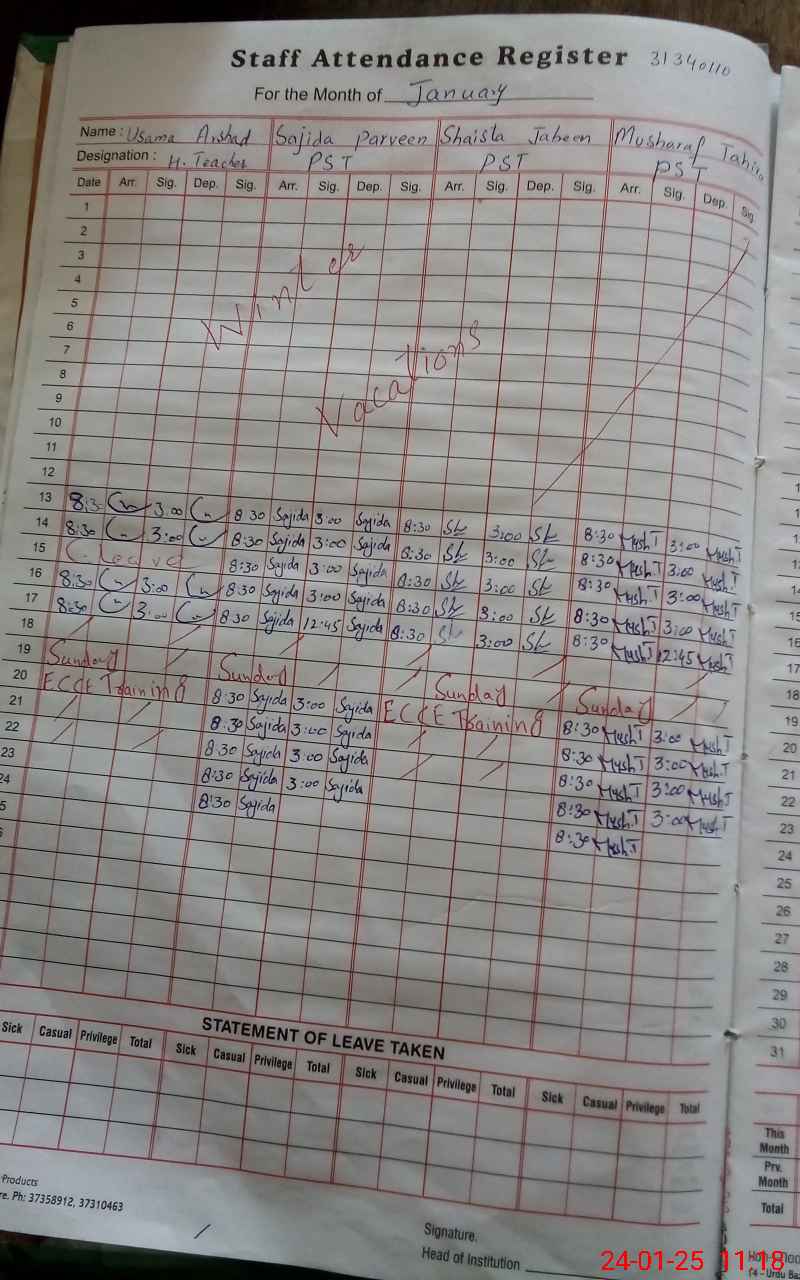 Staff Attendance Register 31340110
For the Month of January
Name : Usama Arshad Sajida Parveen Shaista Jabeen Musharaf Tahira
Designation : H. Teacher PST PST PST
Date Arr. Sig. Dep. Sig. Arr. Sig. Dep. Sig. Arr. Sig. Dep. Sig. Arr. Sig. Dep. Sig.
1
2
3
4
5
6
7
8
9
10
11
12
Winter
Vacations
13 8:30 3:00 8:30 Sajida 3:00 Sajida 8:30 3:00 8:30 MushT 3:00 MushT
14 8:30 3:00 8:30 Sajida 3:00 Sajida 8:30 3:00 8:30 MushT 3:00 MushT
15 C. leave 8:30 Sajida 3:00 Sajida 8:30 3:00 8:30 MushT 3:00 MushT
16 8:30 3:00 8:30 Sajida 3:00 Sajida 8:30 3:00 8:30 MushT 3:00 MushT
17 8:30 3:00 8:30 Sajida 12:45 Sajida 8:30 3:00 8:30 MushT 12:45 MushT
18
19 Sunday Sunday Sunday Sunday
20 ECCE Training 8:30 Sajida 3:00 Sajida ECCE Training 8:30 MushT 3:00 MushT
21 8:30 Sajida 3:00 Sajida 8:30 MushT 3:00 MushT
22 8:30 Sajida 3:00 Sajida 8:30 MushT 3:00 MushT
23 8:30 Sajida 3:00 Sajida 8:30 MushT 3:00 MushT
24 8:30 Sajida 8:30 MushT
5
STATEMENT OF LEAVE TAKEN
Sick Casual Privilege Total Sick Casual Privilege Total Sick Casual Privilege Total Sick Casual Privilege Total
Products
re. Ph: 37358912, 37310463
Signature.
Head of Institution
17
18
19
20
21
22
23
24
25
26
27
28
29
30
31
This
Month
Prv.
Month
Total
24-01-25 11:18